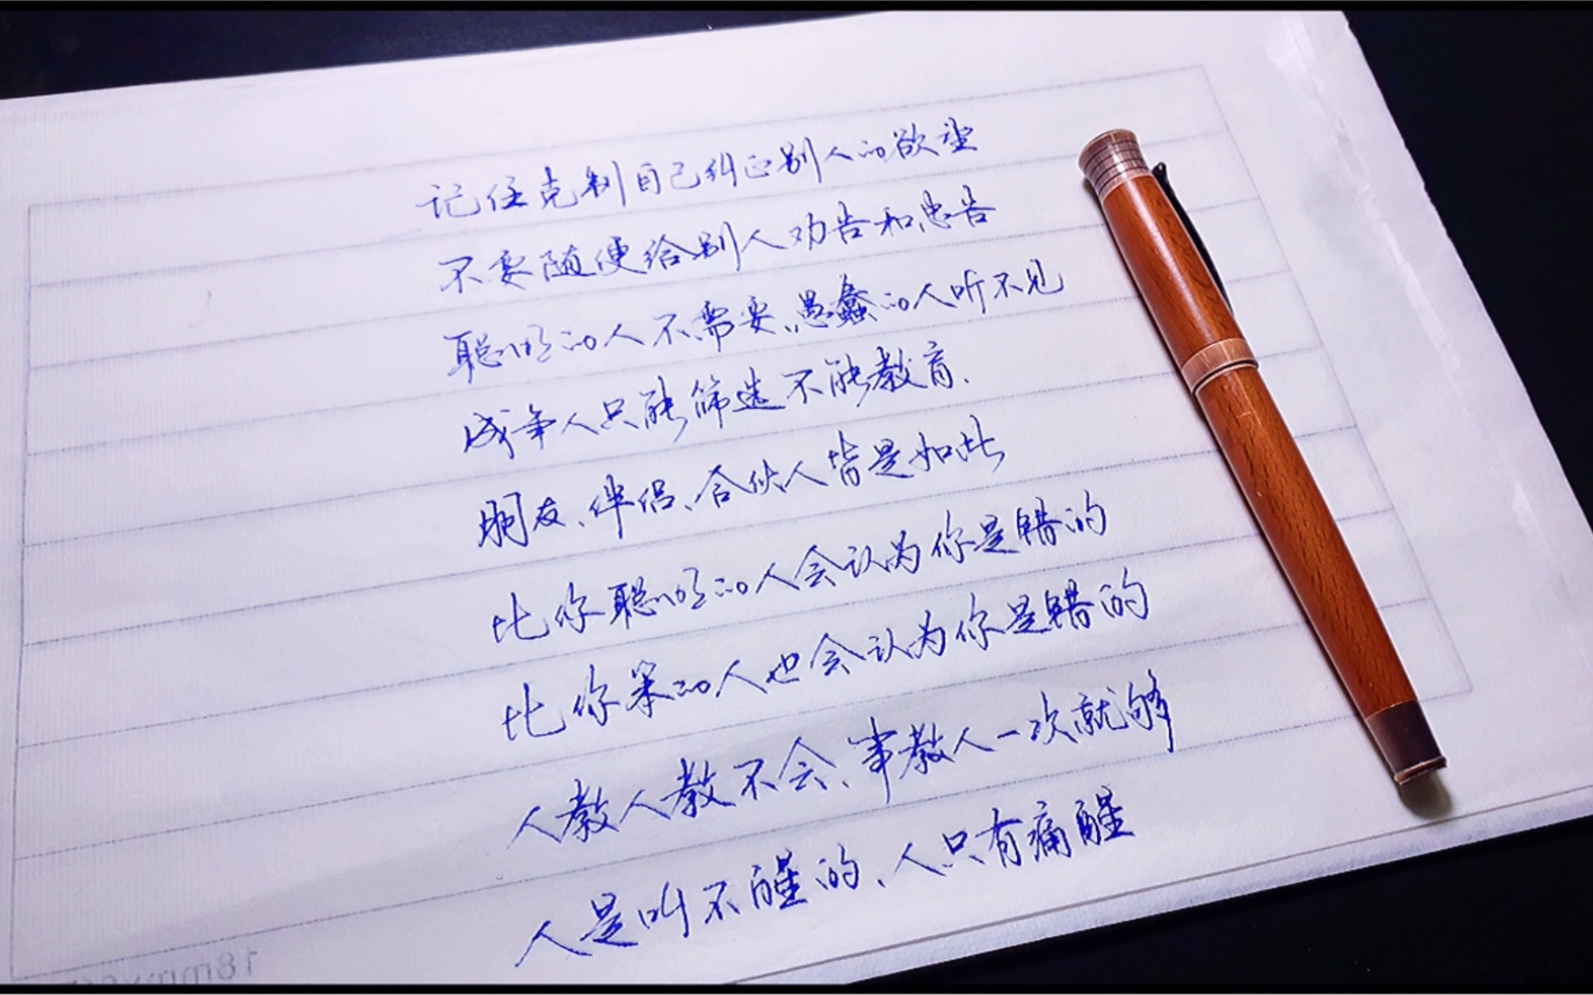 记住克制自己纠正别人的欲望
不要随便给别人劝告和忠告
聪明的人不需要、愚蠢的人听不见
成年人只能筛选不能教育.
朋友、伴侣、合伙人皆是如此
比你聪明的人会认为你是错的
比你笨的人也会认为你是错的
人教人教不会、事教人一次就够
人是叫不醒的、人只有痛醒